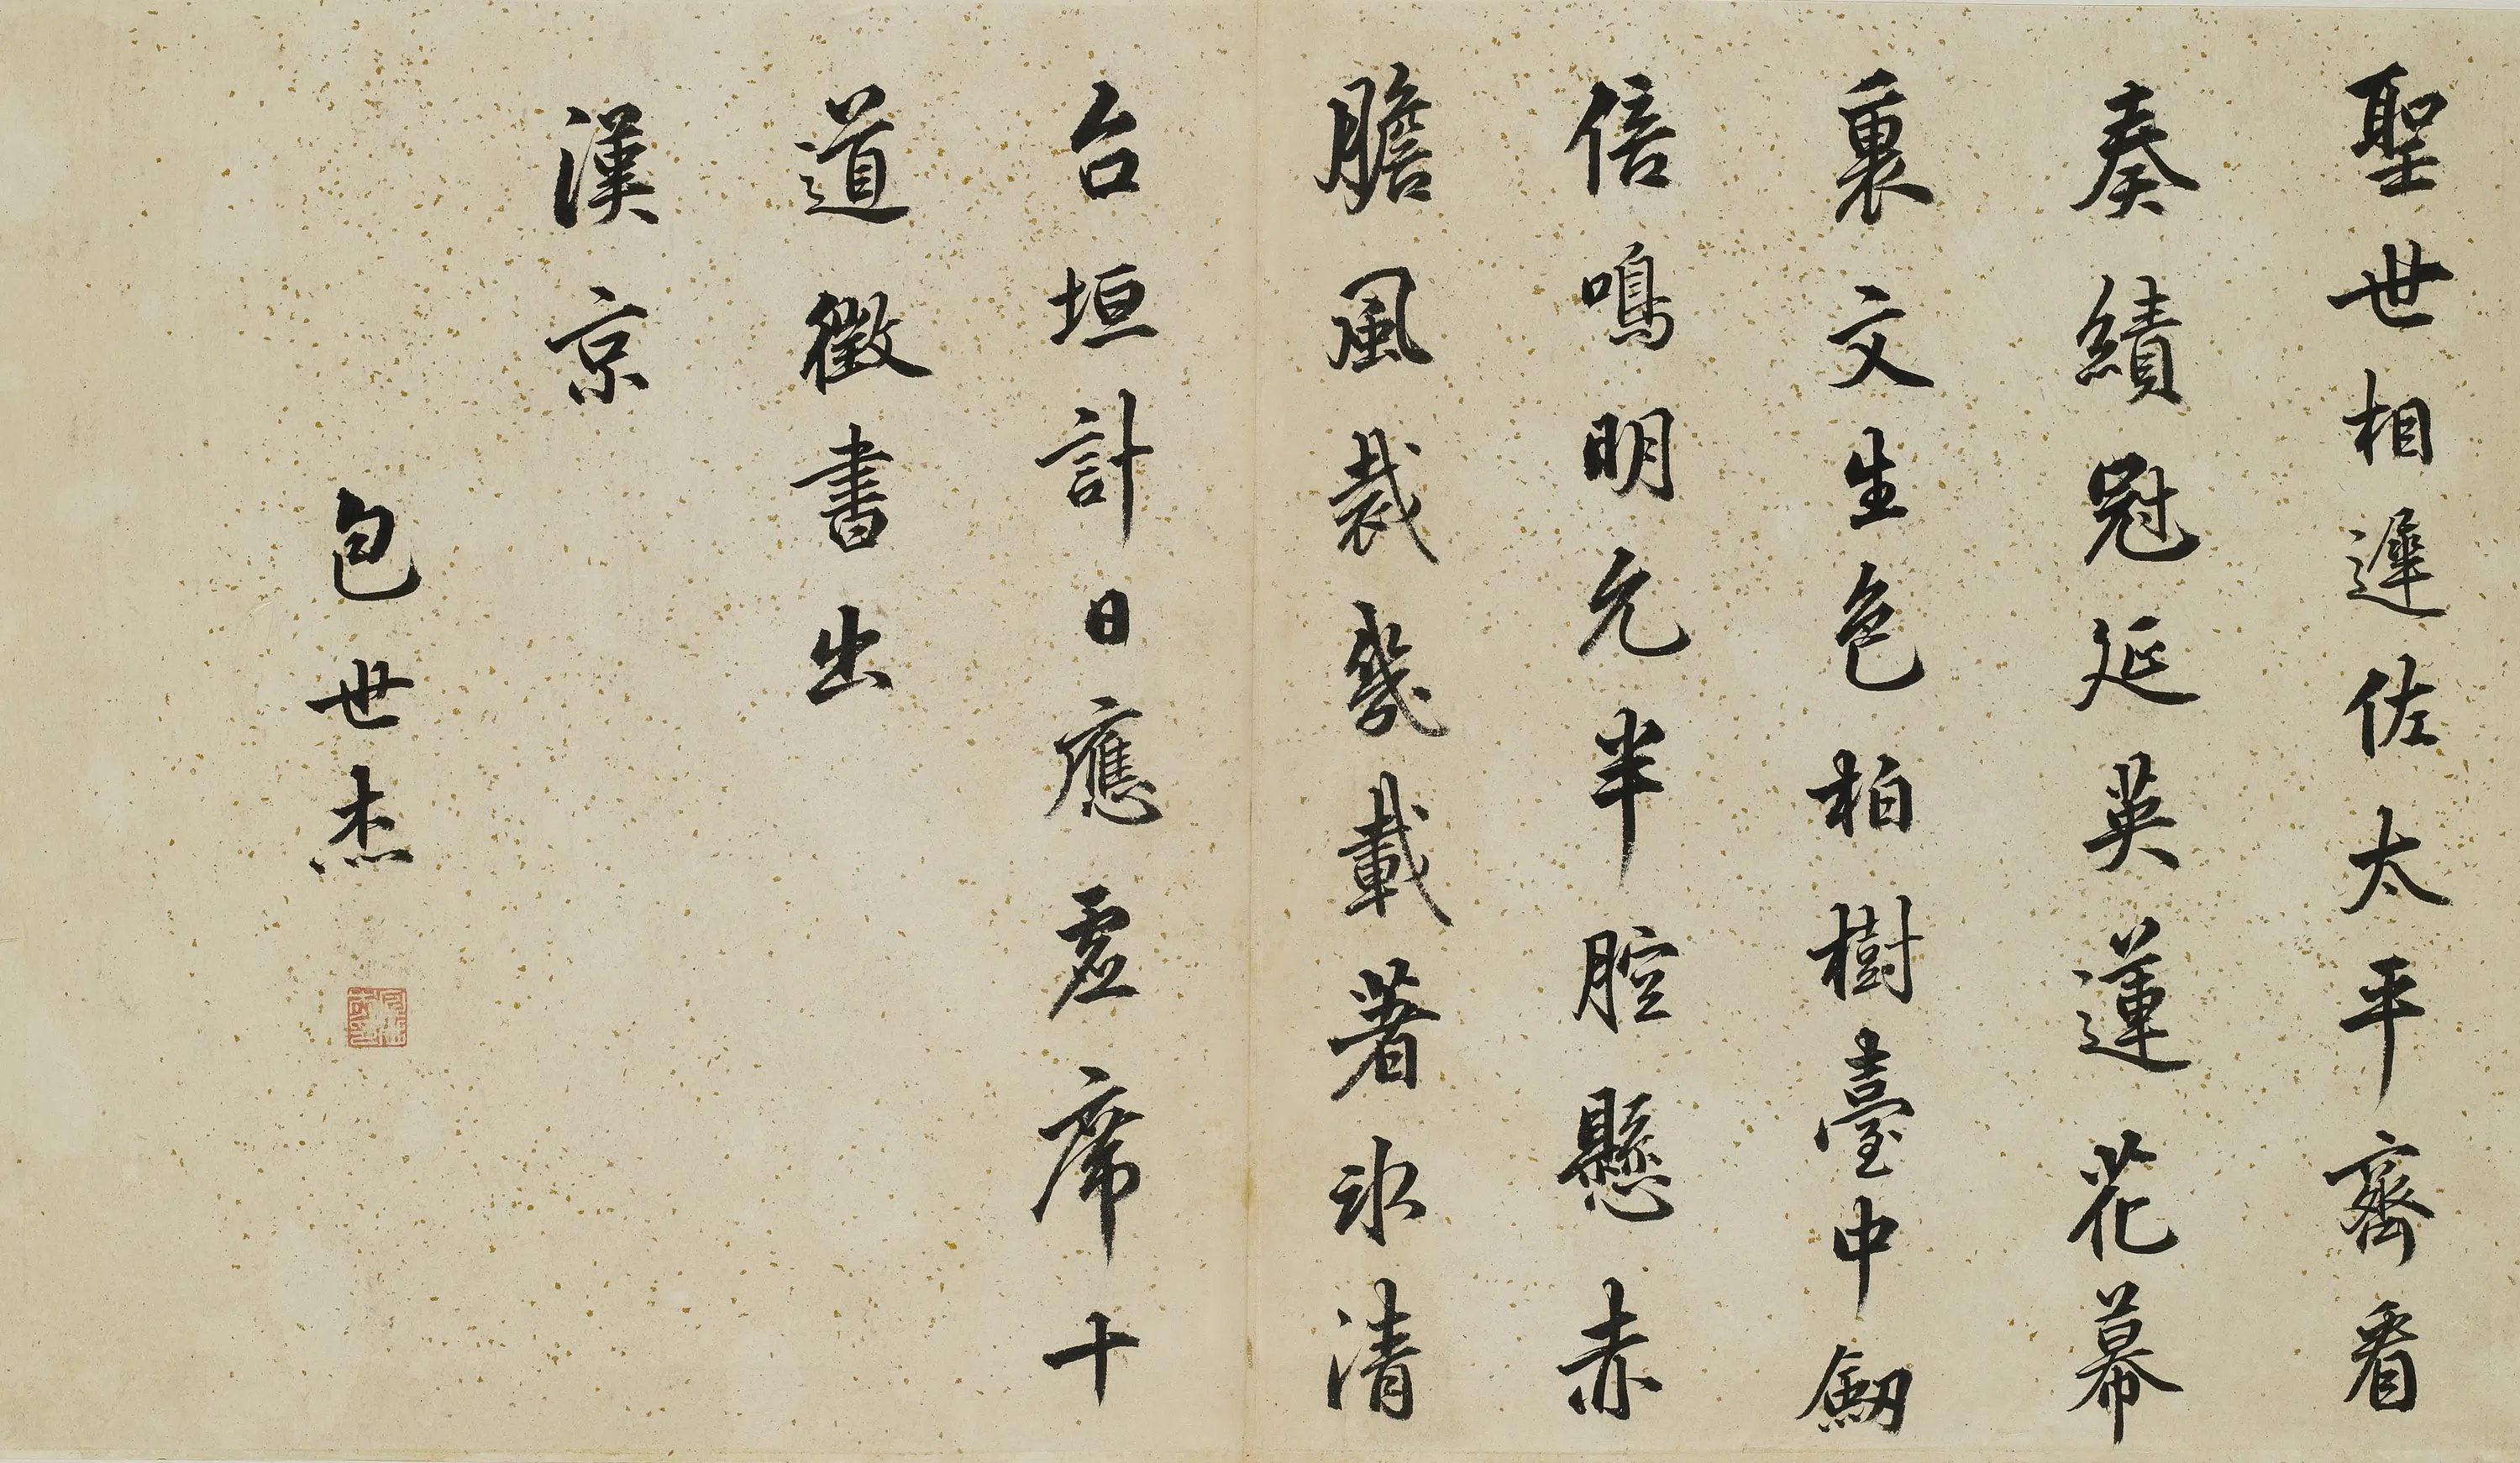 聖世相遲佐太平齊看
奏績冠延英蓮花幕
裏文生色柏樹臺中劒
倍鳴明允半腔懸赤
膽風裁幾載著冰清
台垣計日應虛席十
道徵書出
漢京
包世杰